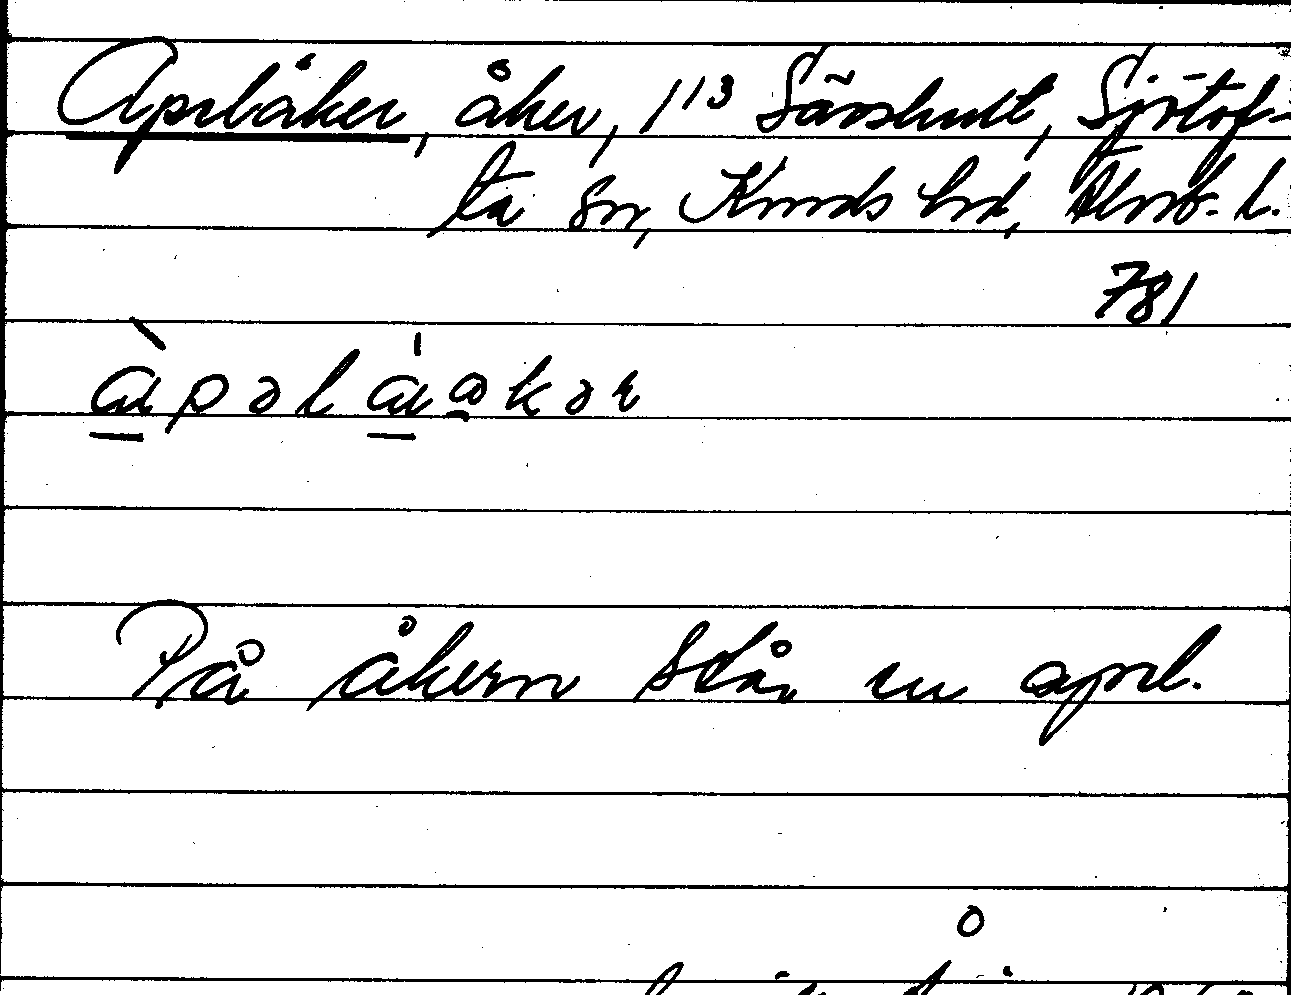 Apelåker, åker, 1¹³ Särshult, Sjötof-
ta sn, Kinds hd, Älvsb. l.
781
På åkern står en apel.